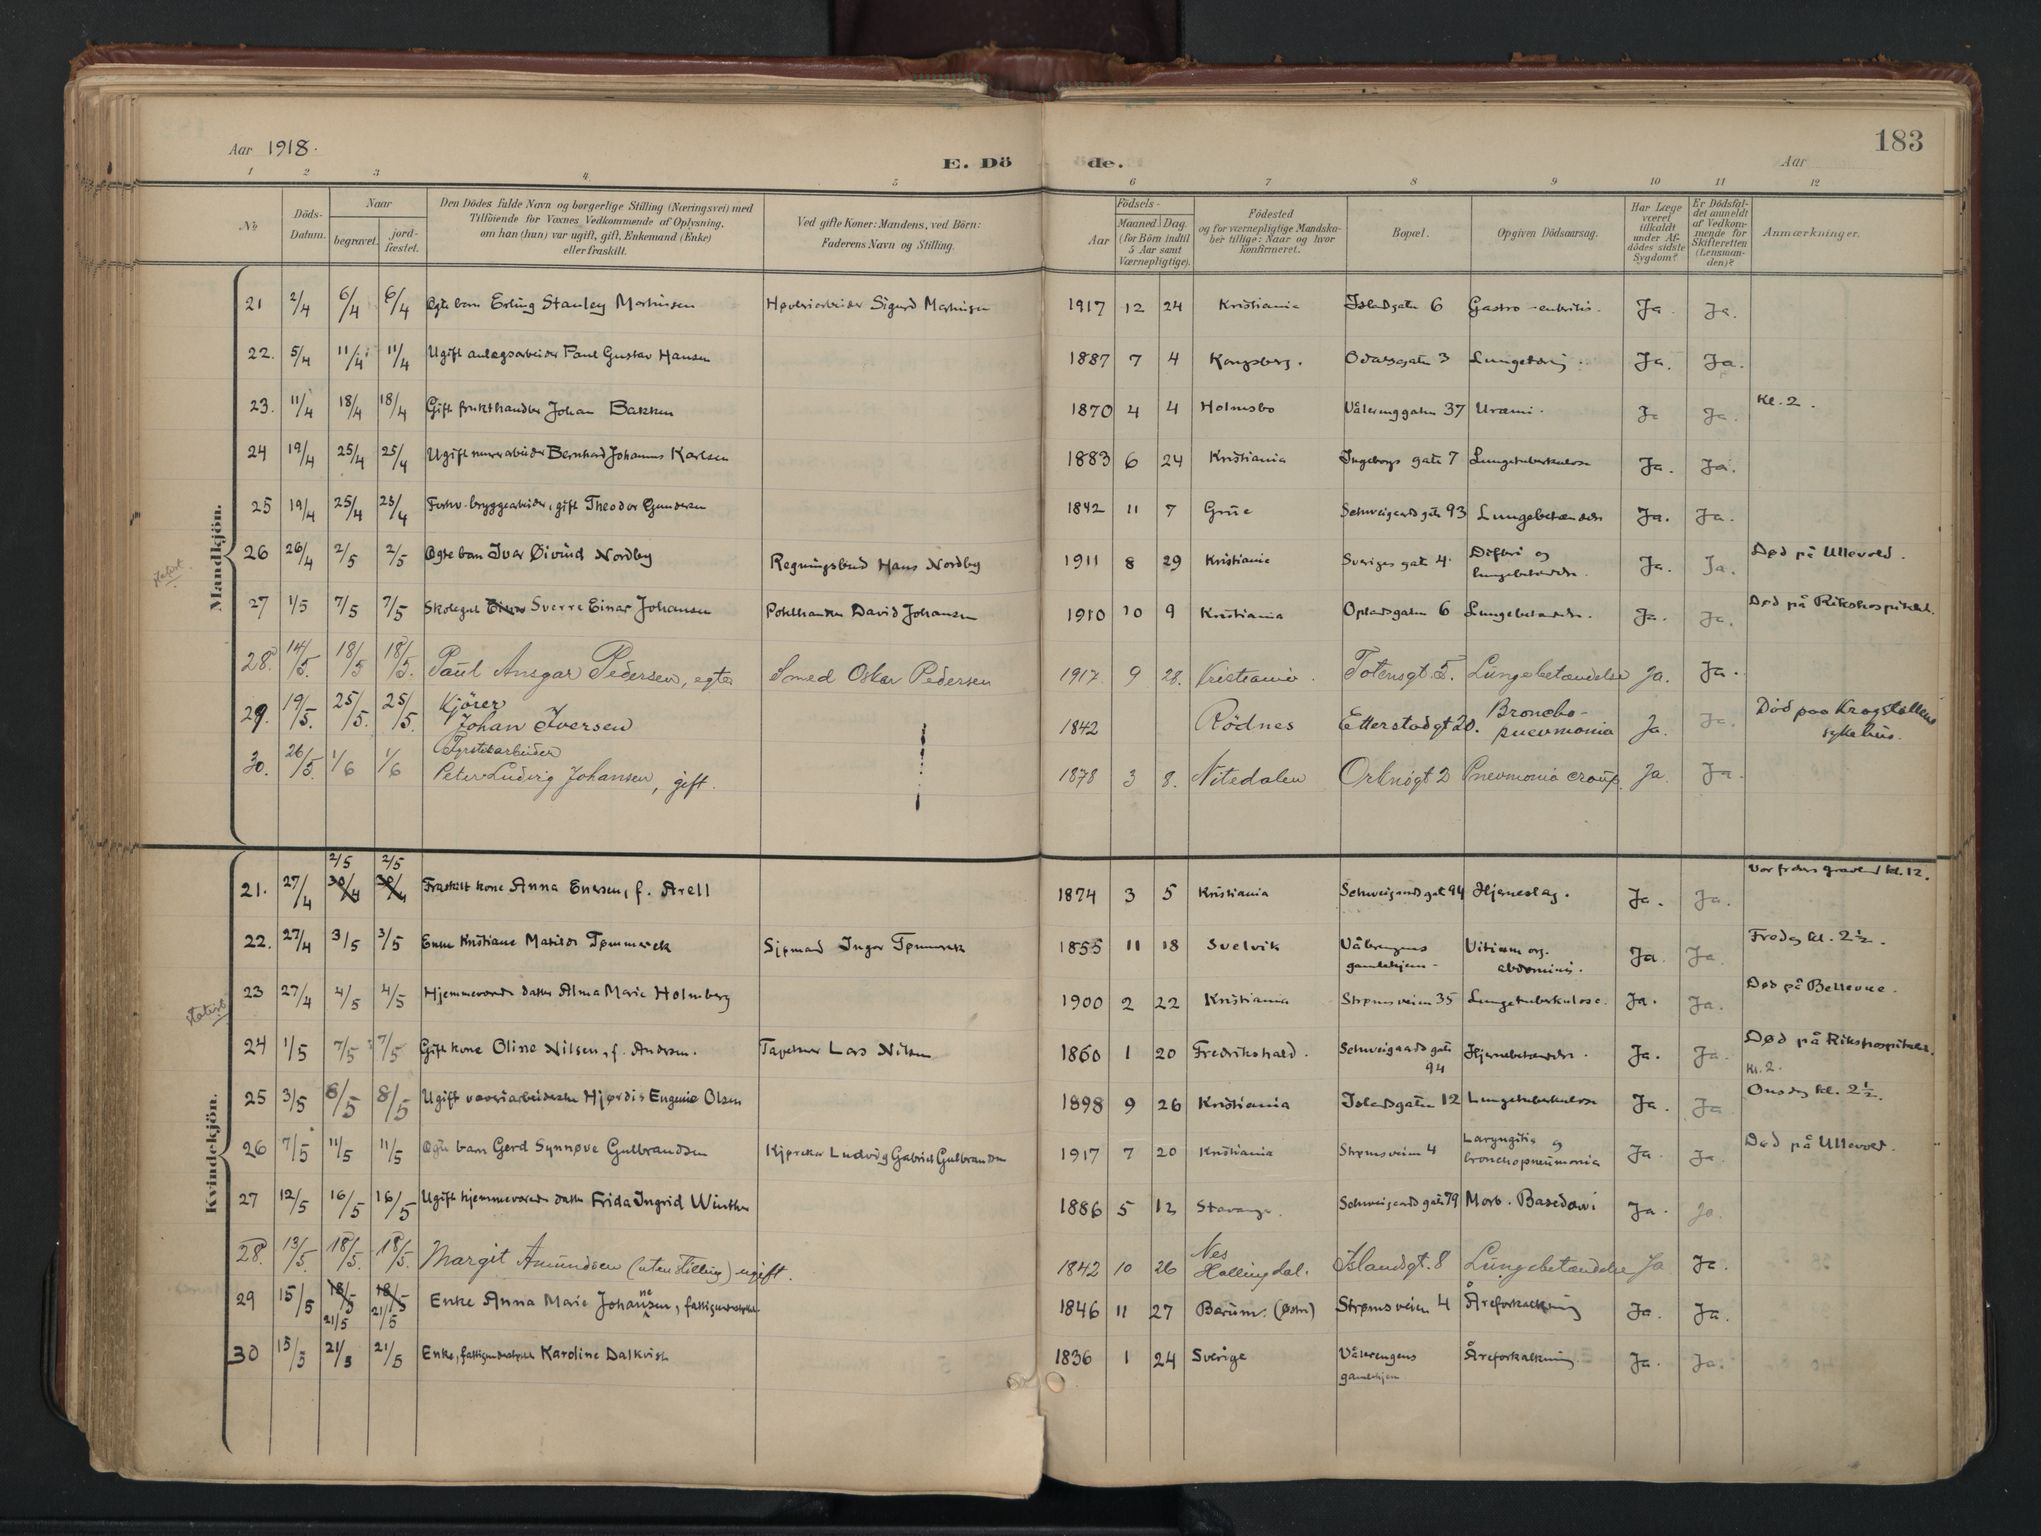 183
Aar 1918.
E. Dö de.
Aar
1 2 3 4. 5 6 7 8 9 10 11 12
№
Döds-Datum.
Naar
begravet.
jord-fæstet.
Den Dödes fulde Navn og borgerlige Stilling (Næringsvei) med
Tilföiende for Voxnes Vedkommende af Oplysning,
om han (hun) var ugift, gift, Enkemand (Enke)
eller fraskilt.
Ved gifte Koner: Mandens, ved Börn:
Faderens Navn og Stilling.
Födsels-
Aar
Maaned Dag.
(for Börn indtil
5 Aar samt
Værnepligtige).
Födested
og for værnepligtige Mandska-
ber tillige: Naar og hvor
konfirmeret.
Bopæl.
Opgiven Dödsaarsag.
Har Læge
været
tilkaldt
under Af-
dödes sidste
Sygdom?
Er Dödsfal-
det anmeldt
af Vedkom-
mende for
Skifteretten
(Lensman-
den)?
Anmærkninger.
Mandkjön.
21 2/4 6/4 6/4 Egte barn Erling Stanley Martinsen Høveriarbeider Sigurd Martinsen 1917 12 24 Kristiania Islandsgaten 6 Gastro-enteritis. Ja. Ja.
22. 5/4 11/4 11/4 Ugift anlægsarbeider Paul Gustav Hansen 1887 7 4 Kongsberg. Odalsgaten 3 Lungetæring. Ja. Ja.
23. 11/4 18/4 18/4 Gift frukthandler Johan Bakken 1870 4 4 Holmsbo Vålerenggaten 37 Uræmi. Ja Ja. Kl. 2.
24 19/4 25/4 25/4 Ugift murerarbeider Bernhard Johannes Karlsen 1883 6 24 Kristiania Ingeborgs gate 7 Lungetuberkulose Ja. Ja.
25 19/4 25/4 25/4 Forhv. bryggearbeider, gift Theodor Gundersen 1842 11 7 Grue Schweigaards gate 93 Lungebetændelse Ja. Ja.
26 26/4 2/5 2/5 Egte barn Ivar Øivind Nordby Regningsbud Hans Nordby 1911 8 29 Kristiania Sveriges gate 4. Difteri og
lungebetændelse. Ja. Ja. Død på Ullevold.
27 1/5 7/5 7/5 Skolegut Sverre Einar Johansen David Johansen 1910 10 9 Kristiania Oplandsgaten 6 Lungebetændelse. Ja. Ja. Død på Rikshospitalet.
28. 14/5. 18/5 18/5. Paul Ansgar Pedersen, egte Smed Oskar Pedersen 1917. 9 28. Kristiania. Totensgt. 5. Lungebetændelse Ja. Ja.
29. 19/5. 25/5. 25/5. Kjörer
Johan Iversen 1842 Rödnes Etterstadgt 20. Broncho-
pneumonia Ja. Ja. Död paa Krogstöttens
sykehus.
30. 26/5. 1/6 1/6 Fyrstikarbeider
Peter Ludvig Johansen, gift. 1878 3 8. Nitedalen Orknögt 2 Pneumonia croup. Ja. Ja.
Kvindekjön.
2/5 2/5
21. 27/4 30/4 30/4 Fraskilt kone Anna Enersen, f. Arell 1874 3 5 Kristiania Schweigaards gate 94 Hjerneslag. Ja. Ja. Vor frelsers gravlund kl. 12.
22. 27/4 3/5 3/5 Enke Kristiane Matilde Tømmeræk Sjømand Inger Tømmeræk 1855 11 18 Svelvik Vålerengens
gamlehjem. Vitium org.
abdominis. Ja. Ja. Fredag kl. 2½.
23 27/4 4/5 4/5 Hjemmeværende datter Alma Marie Holmberg 1900 2 22 Kristiania Strømsveien 35 Lungetuberkulose. Ja. Ja. Død på Bellevue.
24 1/5 7/5 7/5 Gift kone Oline Nilsen, f. Andersen. Tapetserer Lars Nilsen 1860 1 20 Fredrikshald. Schweigaards gate
94 Hjernebetændelse. Ja. Ja. Død på Rikshospitalet.
Kl. 2.
25 3/5 8/5 8/5 Ugift væveriarbeiderske Hjørdis Eugenie Olsen 1898 9 26 Kristiania Islandsgaten 12 Lungetuberkulose Ja. Ja Onsdag kl. 2½.
26 7/5 11/5 11/5 Egte barn Gerd Synnøve Gulbrandsen Kjøreker Ludvig Gabriel Gulbrandsen 1917 7 20 Kristiania Strømsveien 4 Laryngitis og
bronchopneumonia Ja. Ja. Død på Ullevold.
27 12/5 16/5 16/5 Ugift hjemmeværende datter Frida Ingrid Winther 1886 5 12 Stavanger. Schweigaards gate 79 Morb. Basedowi Ja. Ja.
28. 13/5. 18/5. 18/5. Margit Amundsen (uten stilling) ugift. 1842 10 26 Nes
Hallingdal. Islandsgt. 8 Lungebetændelse Ja Ja.
29 15/5 18/5 18/5 Enke Anna Marie Johannesen, fattigunderstøttet 1846 11 27 Bærum. (Østre) Strømsveien 4 Åreforkalkning Ja. Ja.
21/5 21/5
30 15/5 21/5 21/5 Enke, fattigunderstøttet Karoline Dalkvist 1836 1 24 Sverige Vålerengens
gamlehjem Åreforkalkning Ja. Ja.